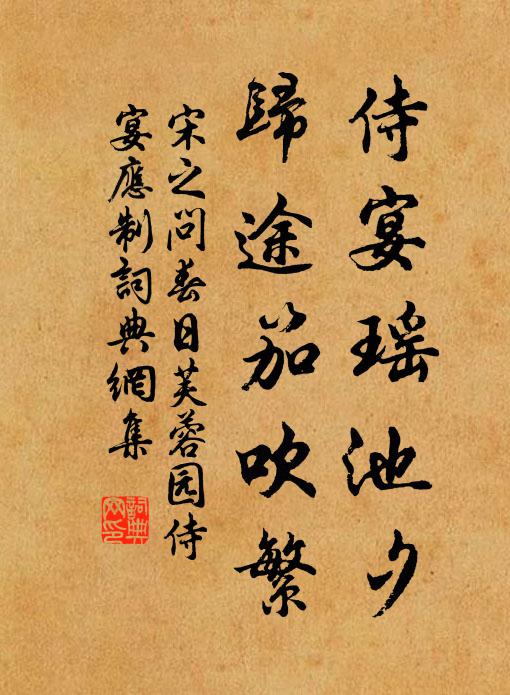 侍宴瑶池夕
歸途笳吹繁
宋之问春日芙蓉园侍
宴應制詞典網集
詞典
网印